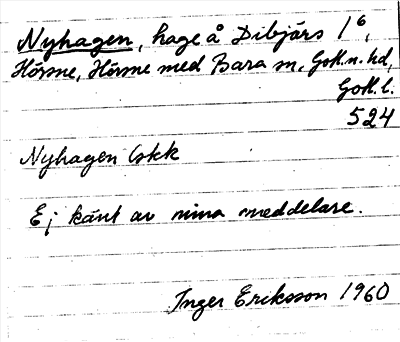 Nyhagen, hage å Dibjärs 1⁶,
Hörsne, Hörsne med Bara sn, Gotl.n. hd,
Gotl. l.
524
Nyhagen Gskk
Ej känt av mina meddelare.
Inger Eriksson 1960